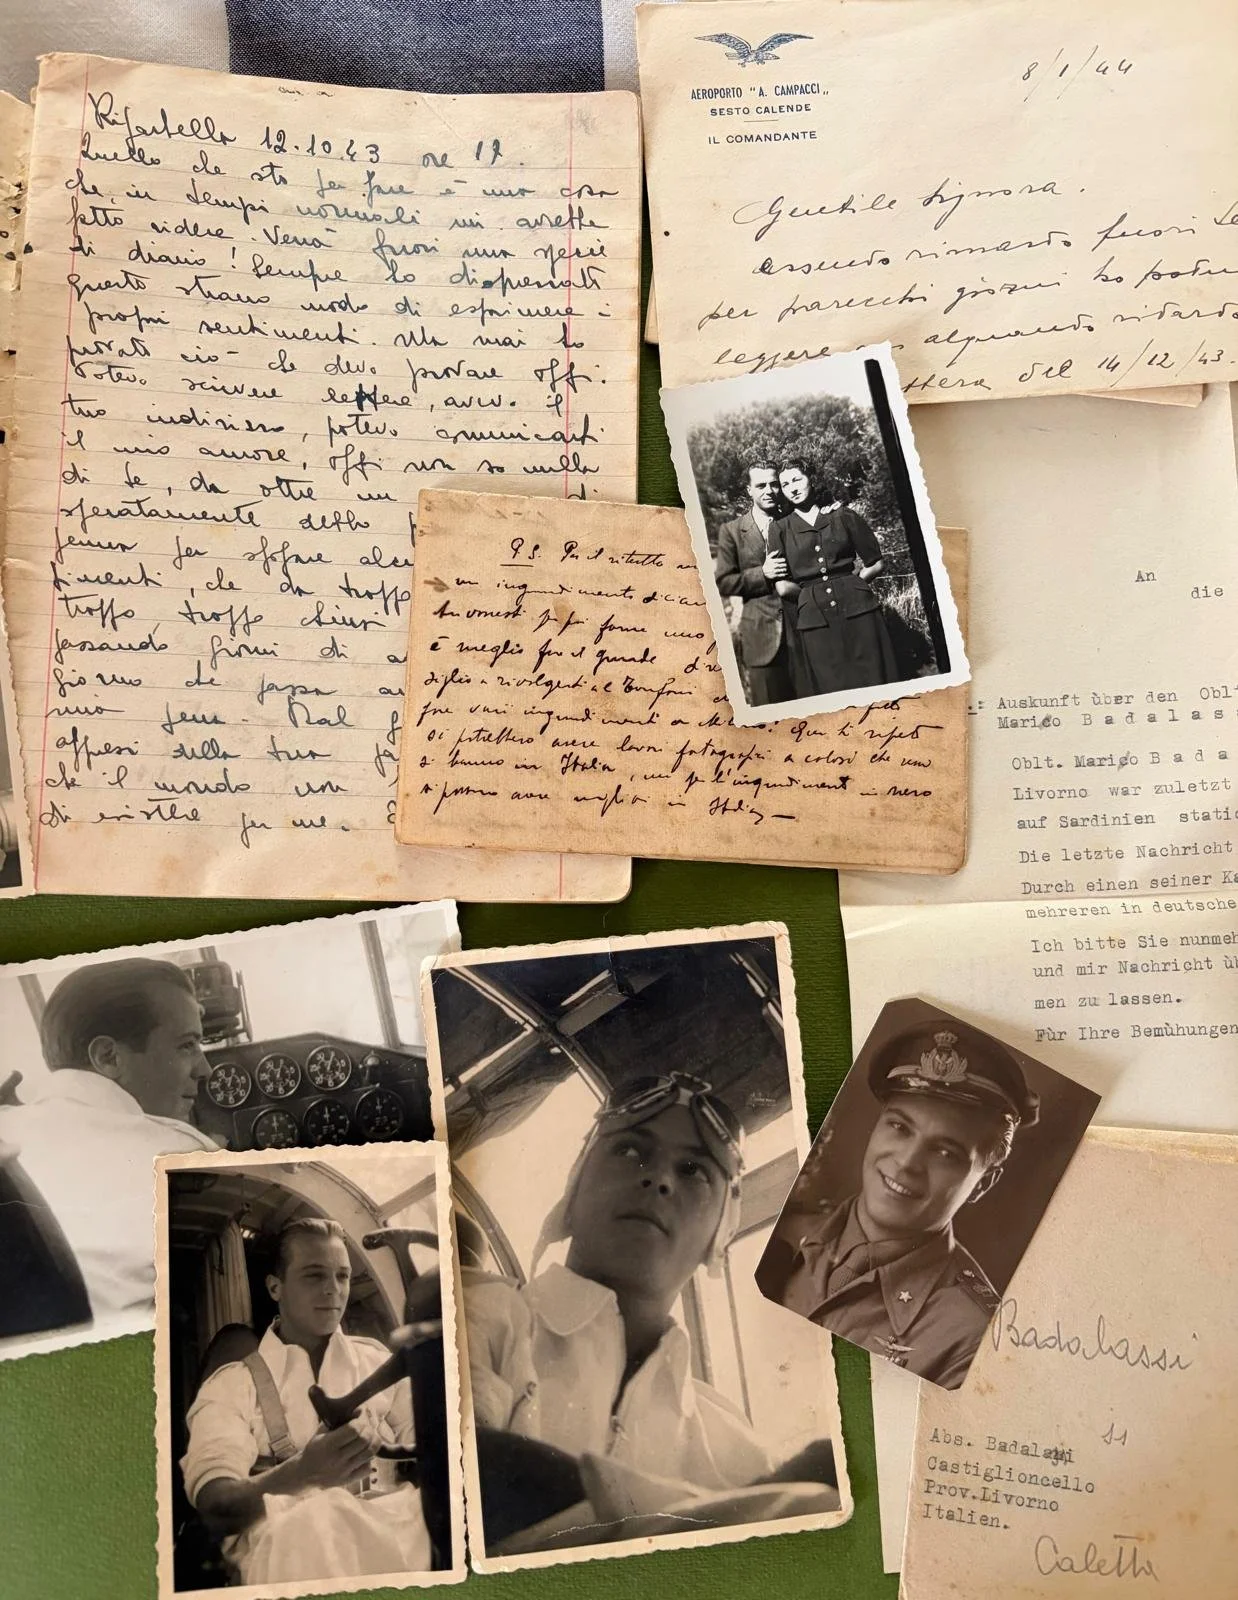 Rifortello 12.10.43 ore 17.
Quello che sto per fare è una cosa
che, in tempi normali mi avrebbe
fatto ridere. Verrà fuori una specie
di diario! Sempre ho disprezzato
questo strano modo di esprimere i
propri sentimenti. Ma mai ho
provato ciò che devo provare oggi.
Potevo scrivere lettere, avevo il
tuo indirizzo, potevo comunicarti
il mio amore, oggi non so nulla
di te, da oltre un
disperatamente della p
penna per sfogare alcu
timenti, che da troppo
troppo, troppo chiusi
passando giorni di a
giorno che passa au
mia pena. Dal g
appresi sulla tua pa
che il mondo non
di esistere per me.
AEROPORTO "A. CAMPACCI"
SESTO CALENDE
IL COMANDANTE
8/1/44
Gentile Signora.
essendo rimasto fuori Se
per parecchi giorni ho potu
leggere alquanto ritardo
lettera del 14/12/43.
P.S. Per il ritratto
un ingrandimento
è meglio fare il grande
siglio a rivolgerti al
fare vari ingrandimenti a
si potrebbero avere lavori fotografici a colori che non
si hanno in Italia, ma per l'ingrandimento in nero
si possono avere migliori in Italia
An
die
.: Auskunft über den Oblt
Marico Badalass
Oblt. Marico Bada
Livorno war zuletzt
auf Sardinien static
Die letzte Nachricht
Durch einen seiner Ka
mehreren in deutsche
Ich bitte Sie nunmeh
und mir Nachricht üb
men zu lassen.
Für Ihre Bemühungen
Badalassi
11
Abs. Badalassi
Castiglioncello
Prov.Livorno
Italien.
Caletta